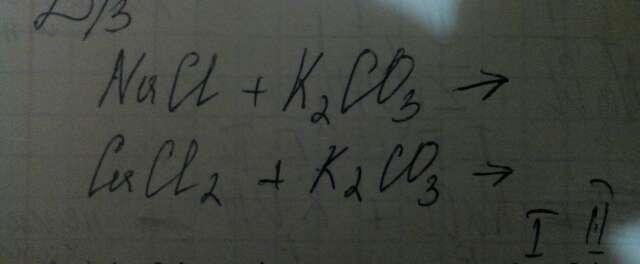 Д/з
NaCl + K₂CO₃ →
CaCl₂ + K₂CO₃ →
I II